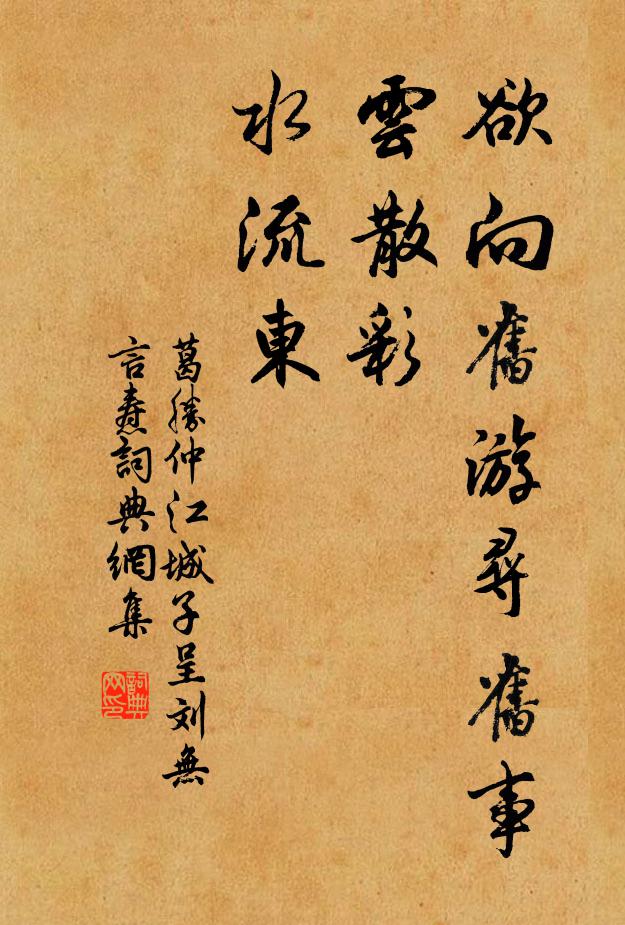 欲向舊游尋舊事
雲散彩
水流東
葛勝仲江城子呈刘無
言焘詞典網集
詞典
网印